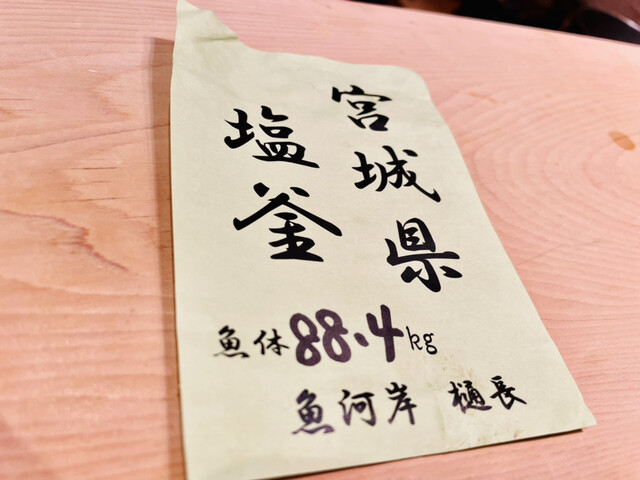 宮城県
塩釜
魚体88.4kg
魚河岸 樋長